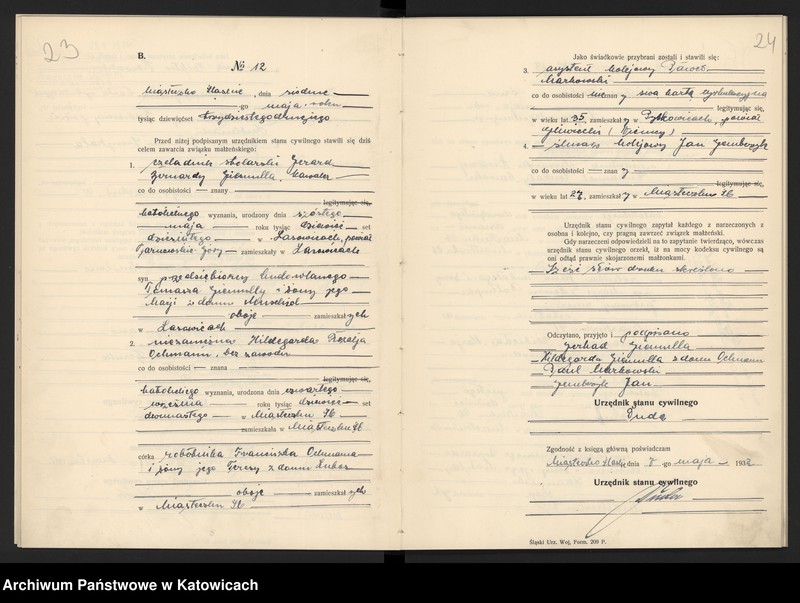 23
B.
No 12
Miasteczko Śląskie, dnia siódme-
-go maja roku
tysiąc dziewięćset trzydziestego drugiego
Przed niżej podpisanym urzędnikiem stanu cywilnego stawili się dziś
celem zawarcia związku małżeńskiego:
1. czeladnik stolarski Gerard
Bernardy Ziemulla, kawaler
co do osobistości — znany
legitymując się,
katolickiego wyznania, urodzony dnia szóstego
maja — roku tysiąc dziewięć — set
dziesiątego — w Żarowicach, powiat
Tarnowskie Góry — zamieszkały w Żarowicach
syn przedsiębiorcy budowlanego
Tomasza Ziemully i żony jego
Marji z domu
oboje — zamieszkał ych
w Żarowicach
2. niezamężna Hildegarda Rozalja
Ochmann, bez zawodu
co do osobistości — znana
legitymując się,
katolickiego wyznania, urodzona dnia czwartego
września — roku tysiąc dziewięć — set
dwunastego — w Miasteczku Śl.
zamieszkała w Miasteczku Śl.
córka robotnika Franciszka Ochmanna
i żony jego Teresy z domu
oboje — zamieszkał ych
w Miasteczku Śl.
24
Jako świadkowie przybrani zostali i stawili się:
3. asystent kolejowy Paweł
Markowski
co do osobistości nieznany swą kartą
legitymując się,
w wieku lat 35, zamieszkały w Pyskowicach, powiat
gliwicki (Niemcy)
4. kolejowy Jan
co do osobistości — znany
legitymując się,
w wieku lat 27, zamieszkały w Miasteczku Śl.
Urzędnik stanu cywilnego zapytał każdego z narzeczonych z
osobna i kolejno, czy pragną zawrzeć związek małżeński.
Gdy narzeczeni odpowiedzieli na to zapytanie twierdząco, wówczas
urzędnik stanu cywilnego orzekł, iż na mocy kodeksu cywilnego są
oni odtąd prawnie skojarzonemi małżonkami.
Sześć słów druku skreślono
Odczytano, przyjęto i podpisano
Gerhad Ziemulla
Hildegarda Ziemulla z domu Ochmann
Paul Markowski
Jan
Urzędnik stanu cywilnego
Duda
Zgodność z księgą główną poświadczam
Miasteczko Śląskie, dnia 7 -go maja — 1932
Urzędnik stanu cywilnego
Duda
Śląski Urz. Woj. Form. 209 P.
Archiwum Państwowe w Katowicach